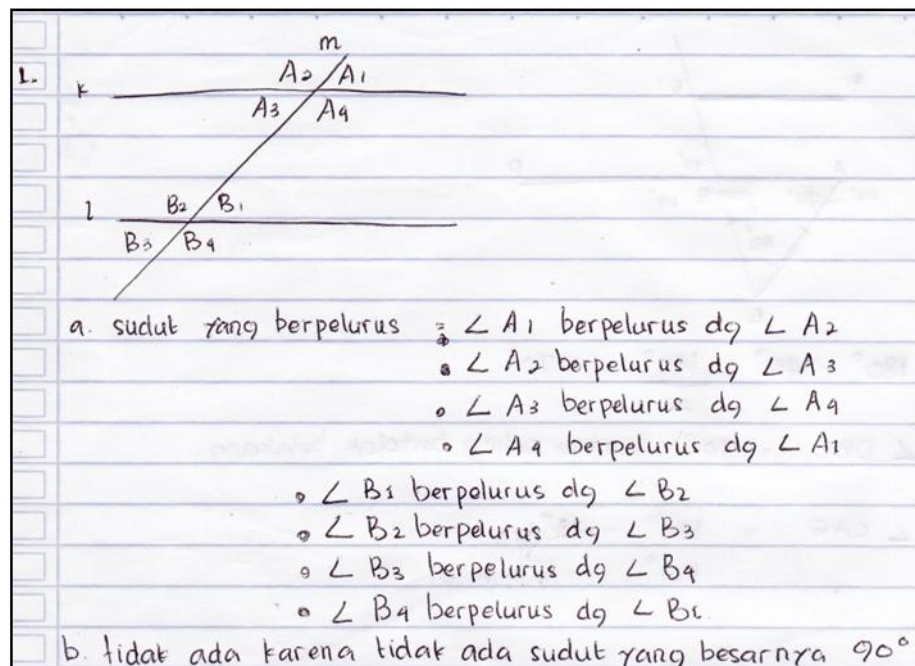 m
1.
A2 A1
k
A3 A4
B2 B1
l
B3 B4
a. sudut yang berpelurus : ∠ A1 berpelurus dg ∠ A2
• ∠ A2 berpelurus dg ∠ A3
• ∠ A3 berpelurus dg ∠ A4
• ∠ A4 berpelurus dg ∠ A1
• ∠ B1 berpelurus dg ∠ B2
• ∠ B2 berpelurus dg ∠ B3
• ∠ B3 berpelurus dg ∠ B4
• ∠ B4 berpelurus dg ∠ B1
b. tidak ada karena tidak ada sudut yang besarnya 90°